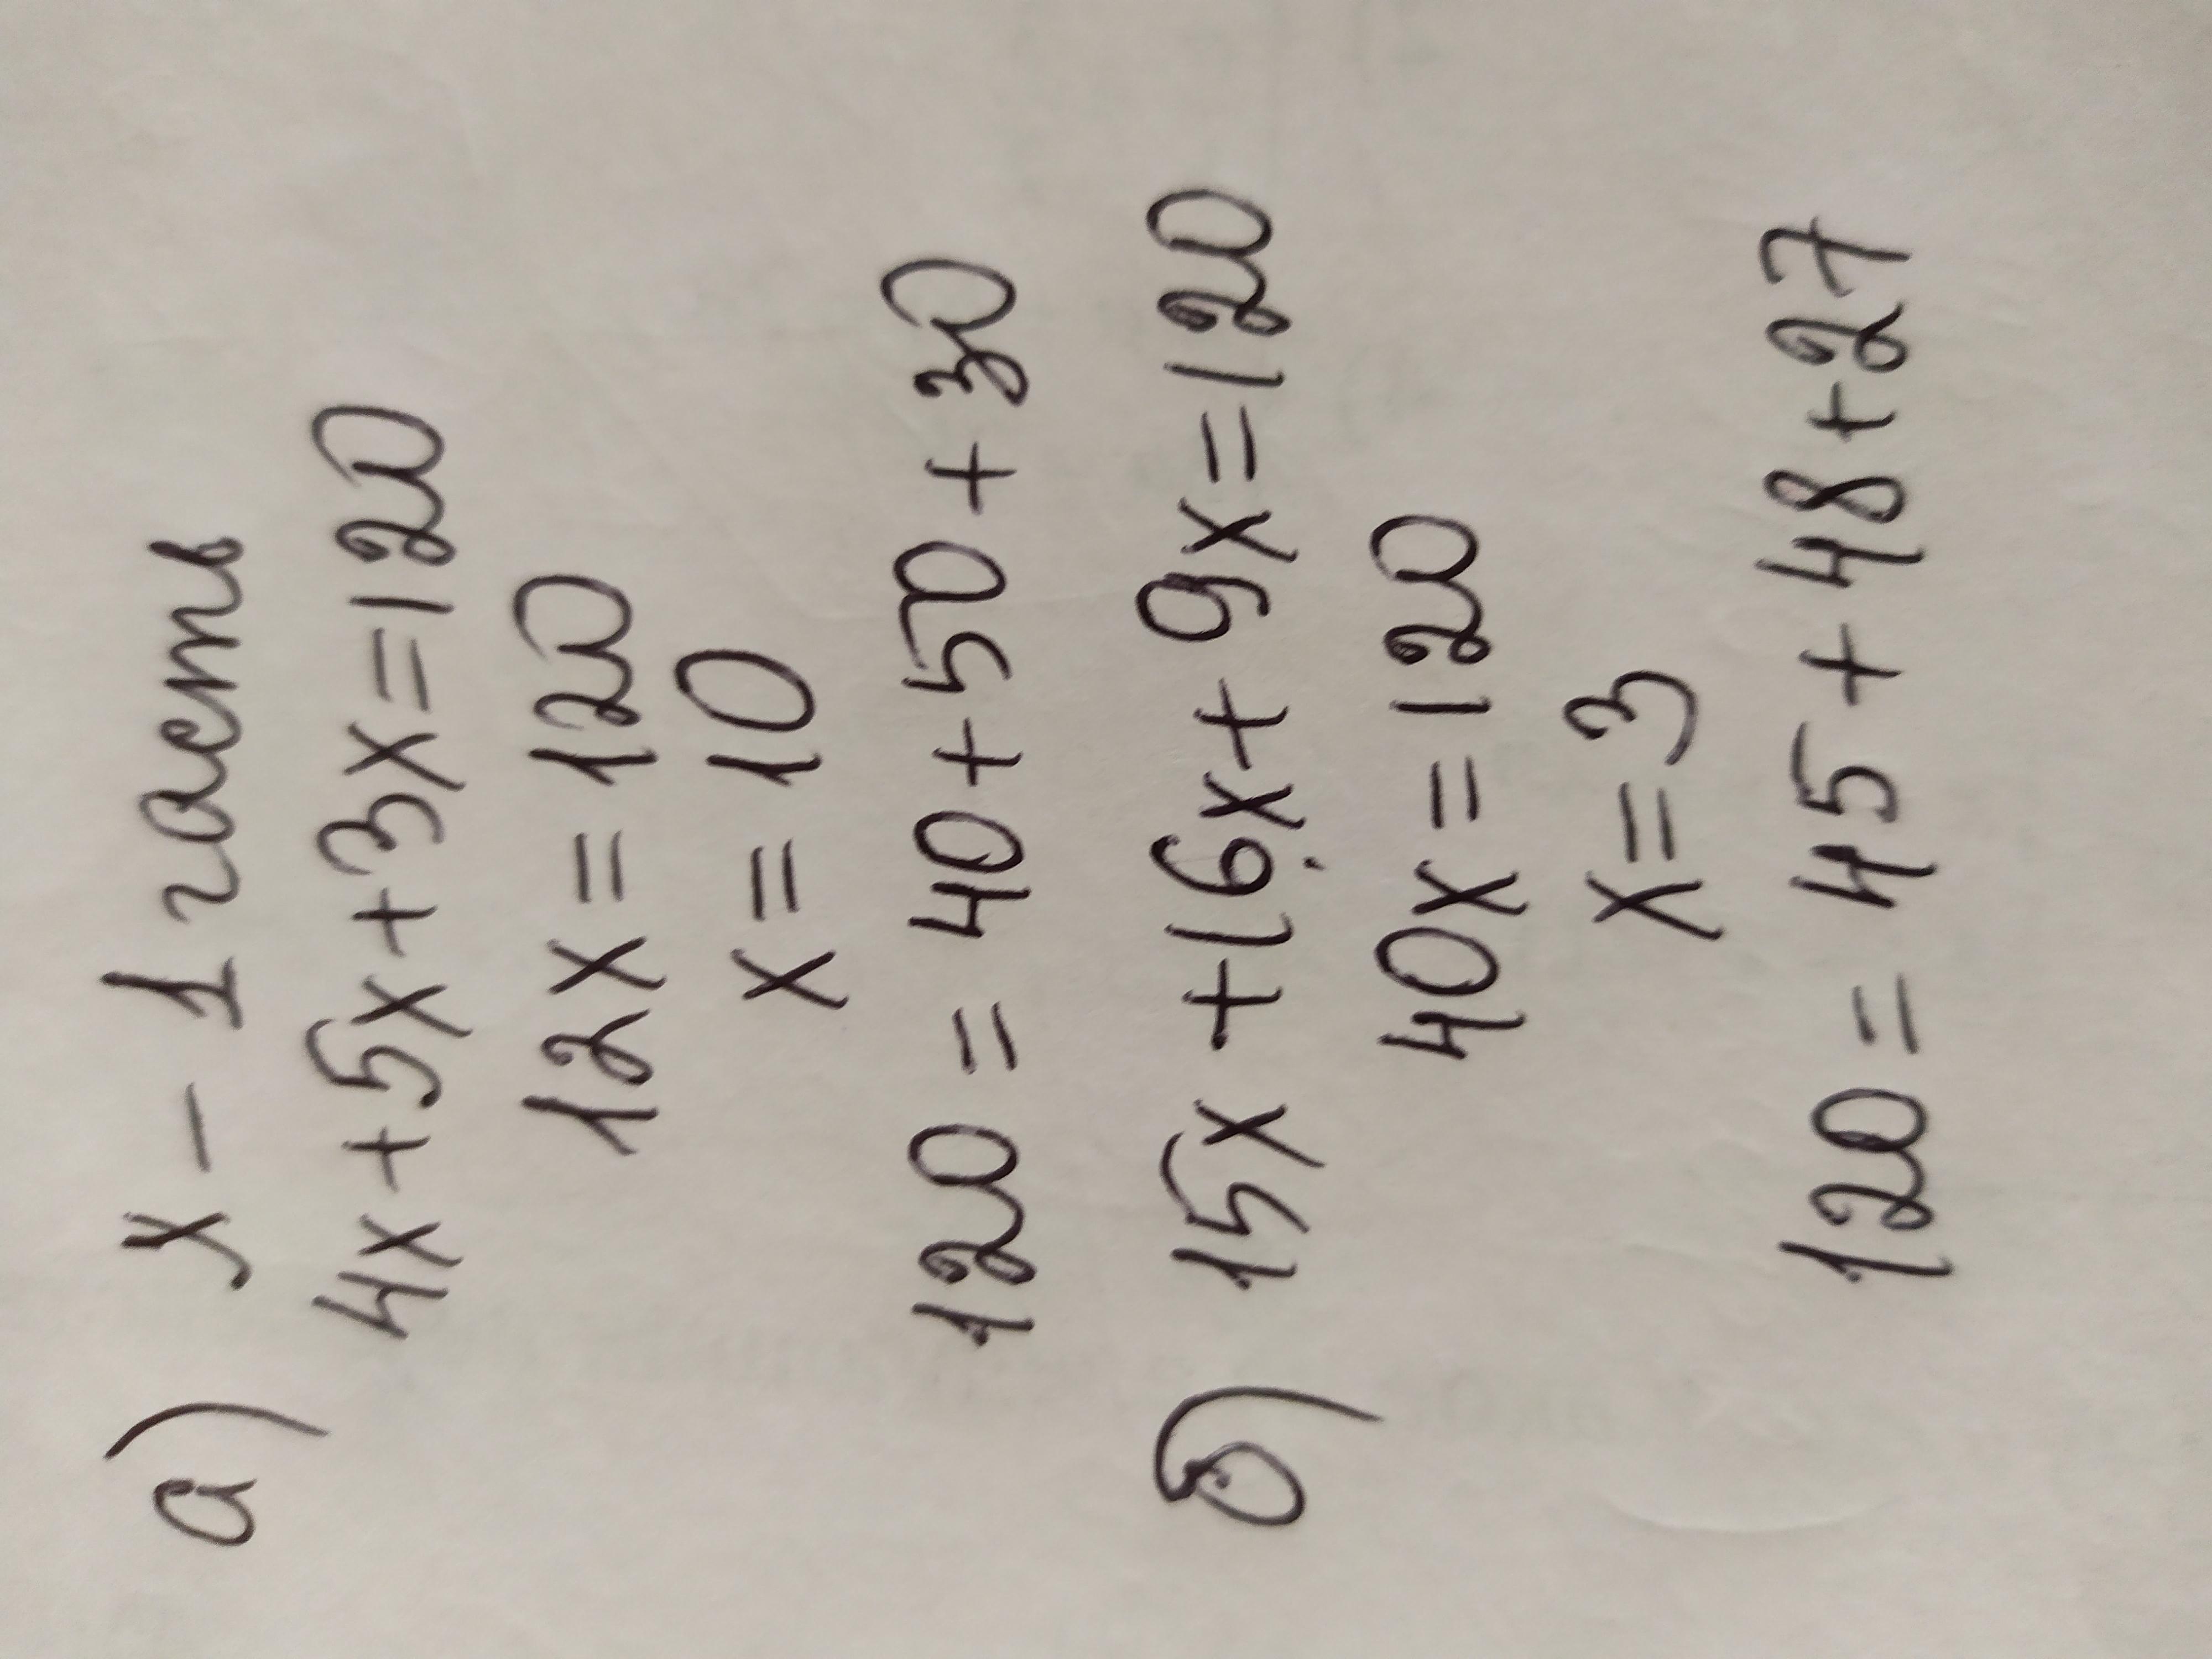 а) х - 1 часть
4х + 5х + 3х = 120
12х = 120
х = 10
120 = 40 + 50 + 30
б) 15х + 16х + 9х = 120
40х = 120
х = 3
120 = 45 + 48 + 27